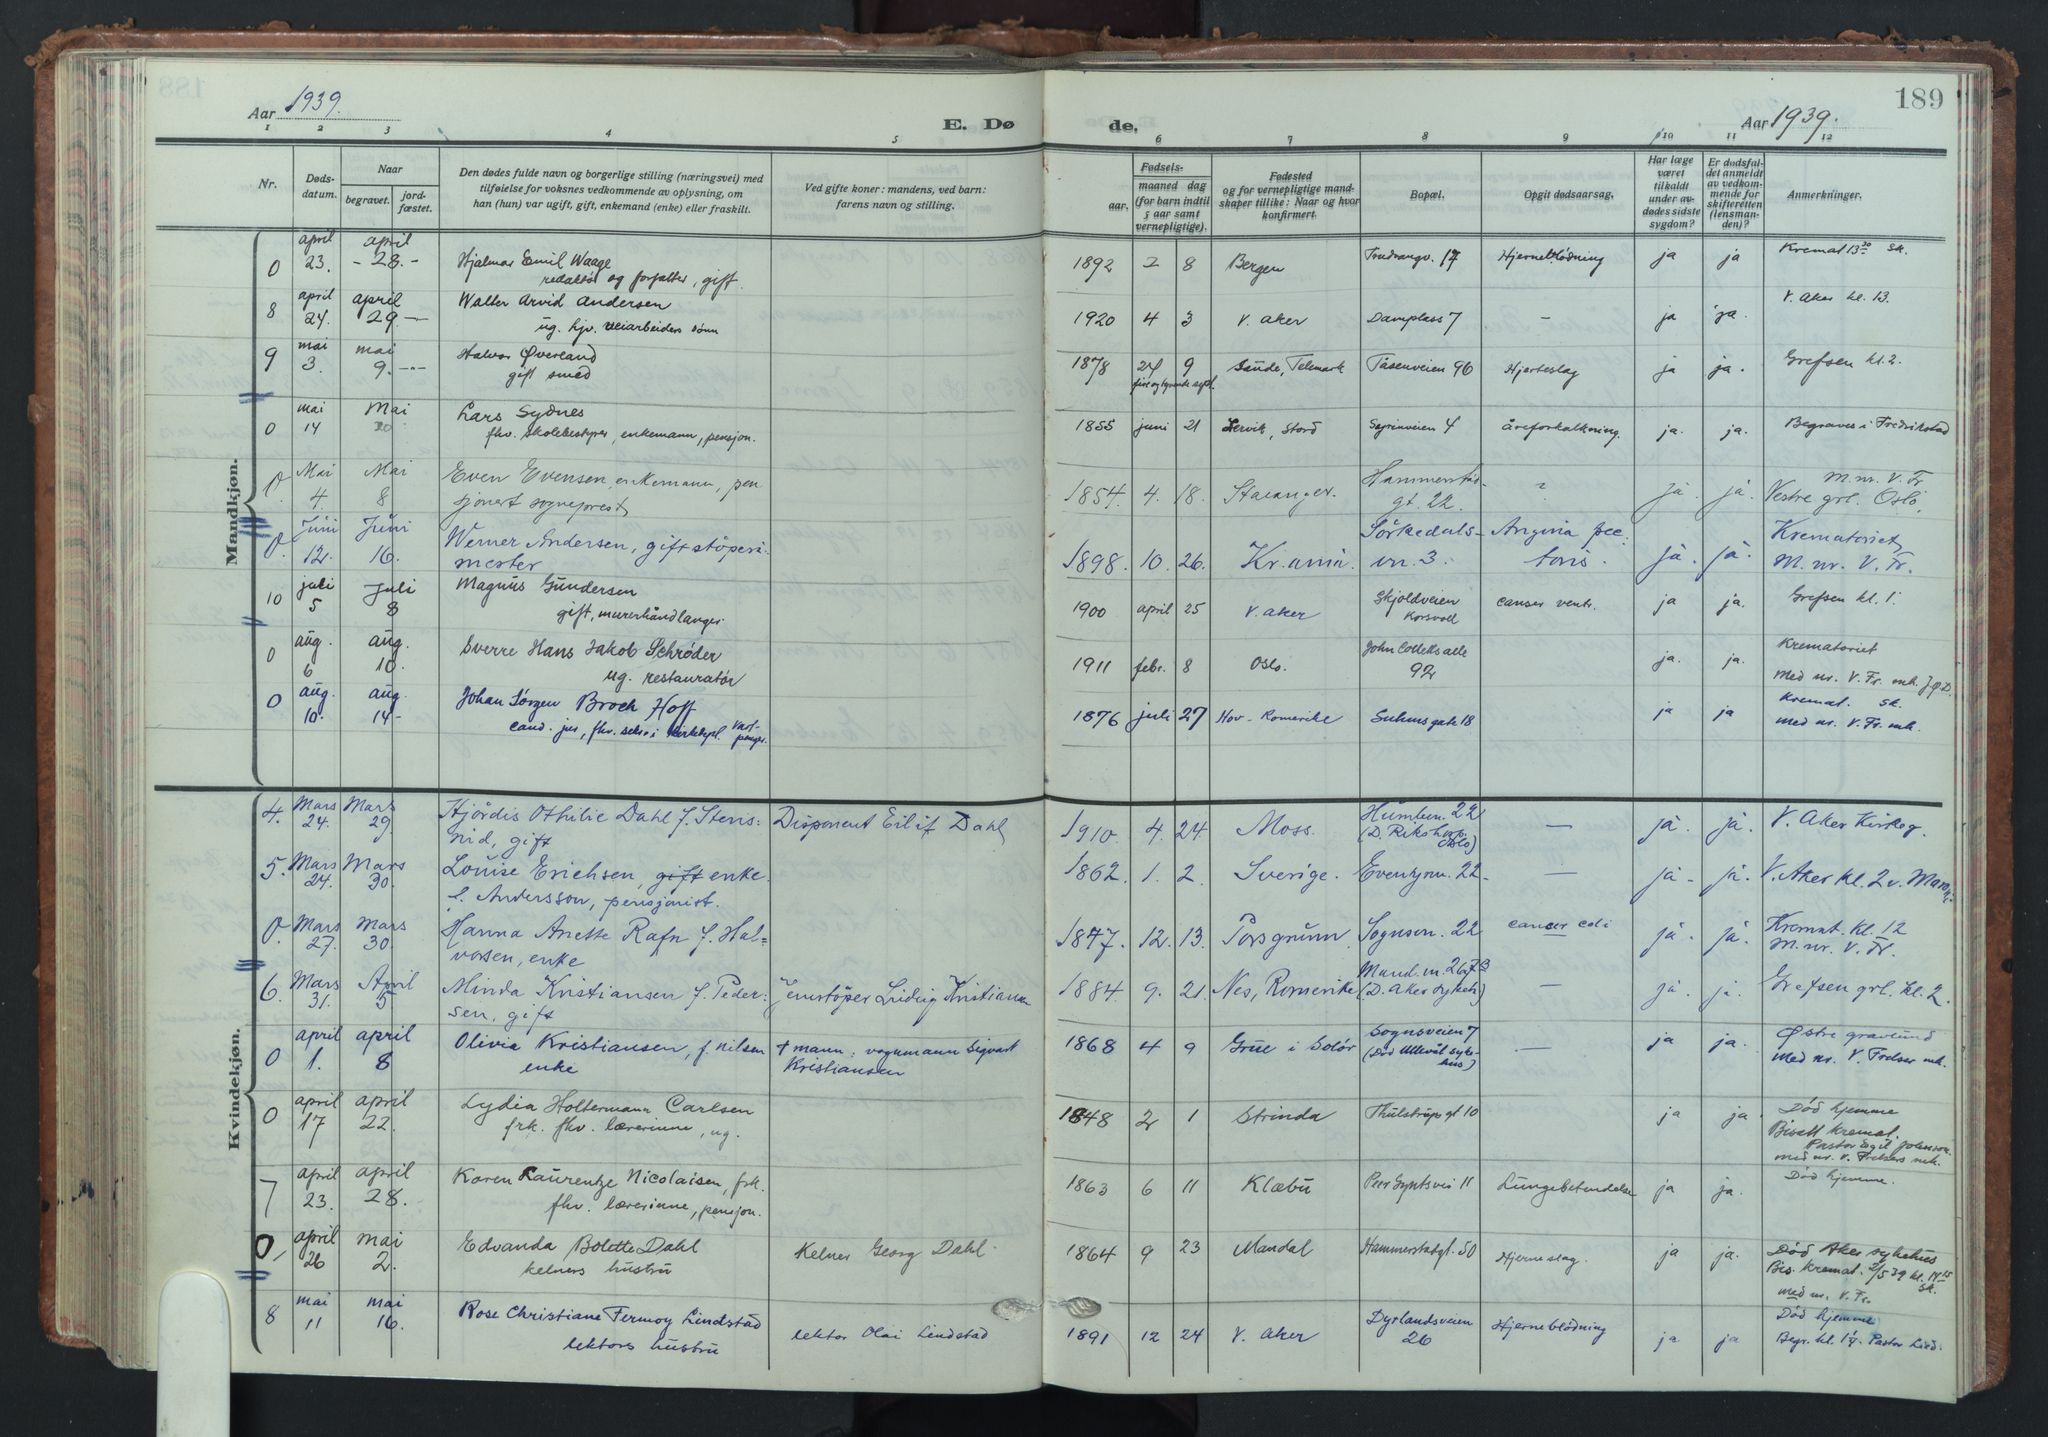 188
189
Aar 1939.
E. Dø
de,
Aar 1939.
1 2 3 4 5 6 7 8 9 10 11 12
Nr.
Døds-
datum.
Naar
begravet.
jord-
fæstet.
Den dødes fulde navn og borgerlige stilling (næringsvei) med
tilføielse for voksnes vedkommende av oplysning, om
han (hun) var ugift, gift, enkemand (enke) eller fraskilt.
Ved gifte koner: mandens, ved barn:
farens navn og stilling.
Fødsels-
aar.
maaned dag
(for barn indtil
5 aar samt
vernepligtige).
Fødested
og for vernepligtige mand-
skaper tillike: Naar og hvor
konfirmert.
Bopæl.
Opgit dødsaarsag.
Har læge
været
tilkaldt
under av-
dødes sidste
sygdom?
Er dødsfal-
det anmeldt
av vedkom-
mende for
skifteretten
(lensman-
den)?
Anmerkninger.
Mandkjøn.
0 april 23. april - 28. - Hjalmar Emil Waage 1892 2 8 Bergen Trudvangv. 17 Hjerneblödning ja ja Kremat 13 30 sk.
redaktör og forfatter, gift.
8 april 24. april 29. Walter Arvid Andersen 1920 4 3 V. Aker Damplass 7 - ja ja. V. Aker kl. 13.
ug. hjv. veiarbeiders sönn
9 mai 3. mai 9. Halvor Øverland 1878 24 9 Saude, Telemark Tåsenveien 96 Hjerteslag ja ja. Grefsen kl. 2.
gift smed
fire og tyvende sept.
0 mai 14 Mai 20 Lars Sydnes 1855 juni 21 Lervik, Stord 4 åreforkalkning. ja. ja. Begraves i Fredrikstad
fhv. skolebestyrer, enkemann, pensjon.
0. Mai 4 Mai 8 Even Evensen, enkemann, pen 1854. 4. 18. Stavanger. Hammerstad- ja. ja. M. nr. V. Fr
sjonert sogneprest gt. 22. Vestre grl. Oslo.
0. Juni 12. Juni 16. Werner Andersen, gift støperi- 1898. 10. 26. Kr.ania. Sörkedals- Angina pec- ja. ja. Krematoriet,
mester vn. 3. toris M. nr. V. Fr.
10 juli 5 Juli 8 Magnus Gundersen 1900 april 25 V. Aker Skjoldveien canser ventr. ja ja. Grefsen kl. 1.
gift, murerhåndlanger Korsvoll
0 aug. 6 aug. 10. Sverre Hans Jakob Schrøder 1911 febr. 8 Oslo. John Colletts alle ja. ja. Krematoriet
ug. restauratør 92 Med nr. V. Fr. mk.
0 aug. 10. aug. 14- Johan Jørgen Broch Hoff 1876 juli 27 Hov - Romerike Suhms gate 18 ja ja kremat. sk.
cand. jur, fhv. sekr. i med nr. V. Fr. mk.
Kvindekjøn.
4. Mars 24. Mars 29. Hjördis Othilie Dahl f. Stens= Disponent Eilif Dahl 1910. 4. 24. Moss. 22 - ja. ja. V. Aker Kirkeg.
rud, gift (D. Riksh. Oslo)
5. Mars 24. Mars 30. Louise Erichsen, gift enke. 1862. 1. 2. Sverige. Eventyrvn. 22. - ja. ja. V. Aker kl. 2 v.
f. Andersson, pensjonist.
0. Mars 27. Mars 30. Hanna Anette Rafn f. Hal= 1847. 12. 13. Porsgrunn. Sognsvn. 22 cancer coli ja. ja. Kremat. kl. 12
vorsen, enke M. nr. V. Fr.
6. Mars 31. April 5 Minda Kristiansen f. Peder- Jernstöper Ludvig Kristiansen 1884. 9. 21. Nes, Romerike (D. Aker Sykeh) - ja. ja. Grefsen grl. kl. 2.
sen, gift
0 april 1. april 8 Olivia Kristiansen, f. Nilsen † mann: vognmann Sigvart 1868 4 9 Grue i Solör Sognsveien 7 - ja ja. Østre gravlund
enke Kristiansen (Död Ullevål sykehus) Med nr. V. Frelser mk.
0 april 17 april 22. Lydia Holtermann Carlsen 1848 2 1 Strinda Thulstrups gt 10 ja ja. Död hjemme
frk. fhv. lærerinne, ug. Bisatt kremat.
Pastor Egil
med nr. V. Frelsers mk.
7 april 23. april 28. Karen Laurentze Nicolaisen, frk. 1863 6 11 Klæbu Peer Gyntsvei 11 Lungebetendelse ja ja. Död hjemme.
fhv. lærerinne, pensjon.
0 april 26 mai 2. Edvanda Bolette Dahl Kelner Georg Dahl. 1864 9 23 Mandal Hammerstadgt. 50 Hjerneslag. ja ja. Död Aker sykehus
kelners hustru Bis. kremat. 2/5 39
med nr. V. Fr.
8 mai 11 mai 16. Rose Christiane Fermoy Lindstad lektor Olai Lindstad 1891 12 24 V. Aker Dyrlandsveien Hjerneblödning ja ja Död hjemme
lektors hustru 26 Begr. kl. 14. Pastor